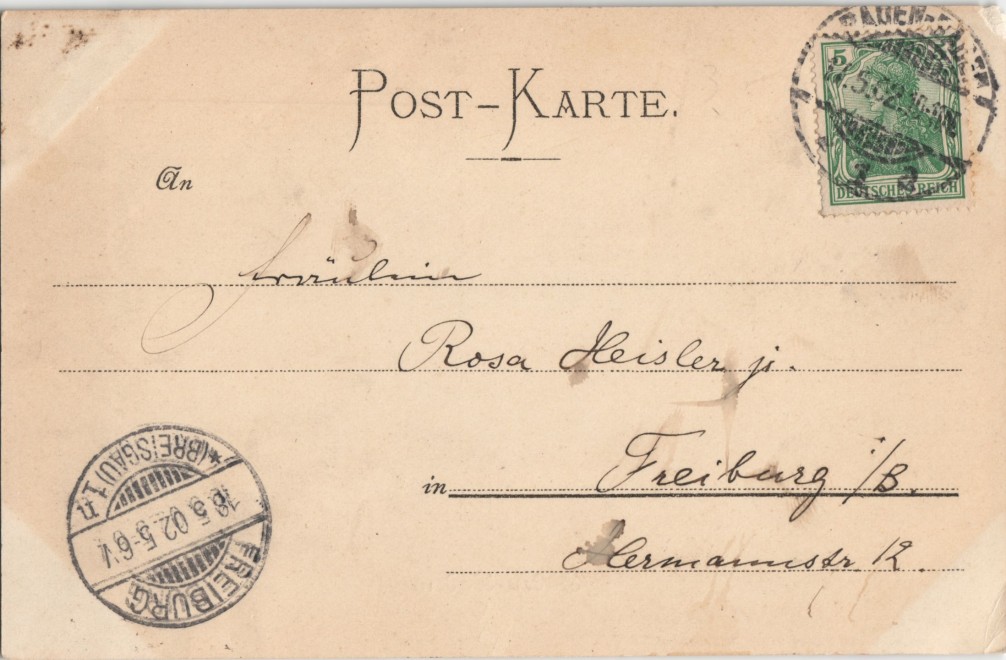 POST-KARTE.
BADEN-BADEN
5
5.02.
DEUTSCHES REICH
An
Fräulein
Rosa Heisler jr.
in Freiburg i/B.
Hermannstr 12.
*(BREISGAU)1 n
18.5.02.5-6V
FREIBURG